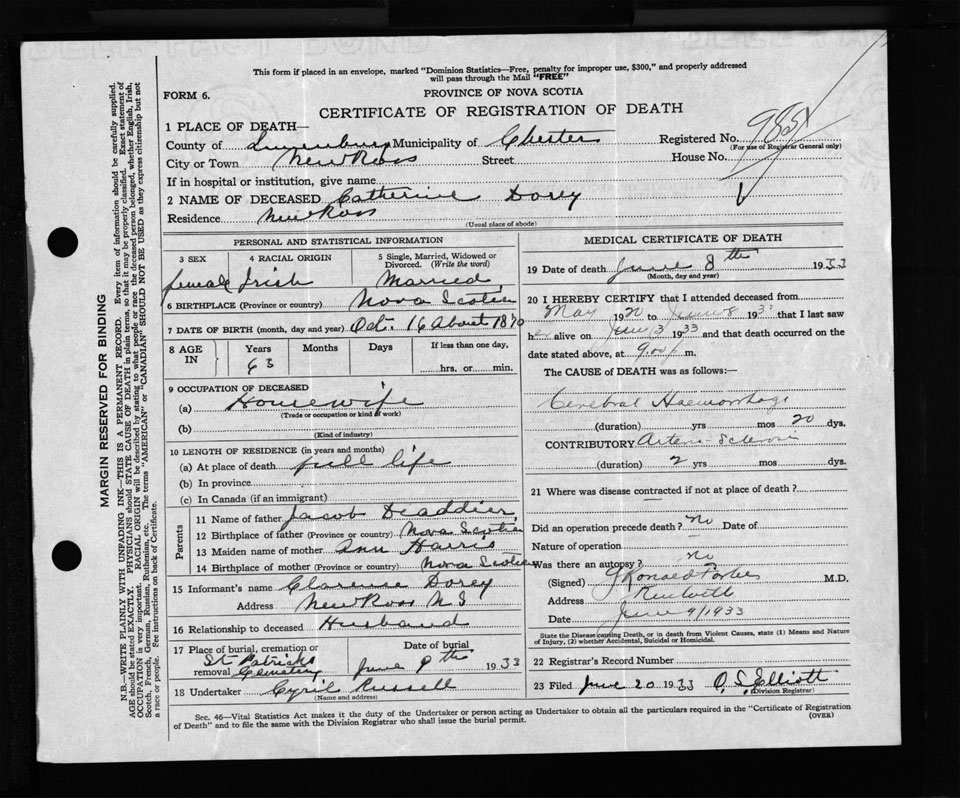 This form if placed in an envelope, marked "Dominion Statistics—Free, penalty for improper use, $300," and properly addressed
will pass through the Mail "FREE"
FORM 6.
PROVINCE OF NOVA SCOTIA
CERTIFICATE OF REGISTRATION OF DEATH
1 PLACE OF DEATH—
County of Lunenburg Municipality of Chester Registered No. 985
(For use of Registrar General only)
City or Town New Ross Street House No.
If in hospital or institution, give name
2 NAME OF DECEASED Catherine Dorey
Residence New Ross
(Usual place of abode)
PERSONAL AND STATISTICAL INFORMATION
3 SEX 4 RACIAL ORIGIN 5 Single, Married, Widowed or
Divorced. (Write the word)
female Irish Married
6 BIRTHPLACE (Province or country) Nova Scotia
7 DATE OF BIRTH (month, day and year) Oct. 16 About 1870
8 AGE IN Years Months Days If less than one day,
63 hrs. or min.
9 OCCUPATION OF DECEASED
(a) Housewife
(Trade or occupation or kind of work)
(b)
(Kind of industry)
10 LENGTH OF RESIDENCE (in years and months)
(a) At place of death full life
(b) In province
(c) In Canada (if an immigrant)
Parents
11 Name of father Jacob Deaddier
12 Birthplace of father (Province or country) Nova Scotia
13 Maiden name of mother Ann Harris
14 Birthplace of mother (Province or country) Nova Scotia
15 Informant's name Clarence Dorey
Address New Ross N S
16 Relationship to deceased Husband
17 Place of burial, cremation or removal Date of burial
St Patricks Cemetery June 9th 1933
18 Undertaker Cyril Russell
(Name and address)
MEDICAL CERTIFICATE OF DEATH
19 Date of death June 8th 1933
(Month, day and year)
20 I HEREBY CERTIFY that I attended deceased from
May 1920 to June 8 193 that I last saw
h er alive on June 3 1933 and that death occurred on the
date stated above, at 9.00 m.
The CAUSE of DEATH was as follows:—
Cerebral Haemorrhage
(duration) yrs mos 20 dys.
CONTRIBUTORY Arterio-Sclerosis
(duration) 2 yrs mos dys.
21 Where was disease contracted if not at place of death?
Did an operation precede death? no Date of
Nature of operation
Was there an autopsy? no
(Signed) J Ronald Forbes M.D.
Address
Date June 9/1933
State the Disease causing Death, or in death from Violent Causes, state (1) Means and Nature
of Injury, (2) whether Accidental, Suicidal or Homicidal.
22 Registrar's Record Number
23 Filed June 20 1933 O. S. Elliott
(Division Registrar)
Sec. 46—Vital Statistics Act makes it the duty of the Undertaker or person acting as Undertaker to obtain all the particulars required in the "Certificate of Registration
of Death" and to file the same with the Division Registrar who shall issue the burial permit.
(OVER)
MARGIN RESERVED FOR BINDING
N.B.—WRITE PLAINLY WITH UNFADING INK—THIS IS A PERMANENT RECORD. Every item of information should be carefully supplied.
AGE should be stated EXACTLY. PHYSICIANS should STATE CAUSE OF DEATH in plain terms, so that it may be properly classified. Exact statement of
OCCUPATION is very important. RACIAL ORIGIN will be described by stating to what people or race the deceased person belonged, whether English, Irish,
Scotch, French, German, Russian, Ruthenian, etc. The terms "AMERICAN" or "CANADIAN" SHOULD NOT BE USED as they express citizenship but not
a race or people. See instructions on back of Certificate.